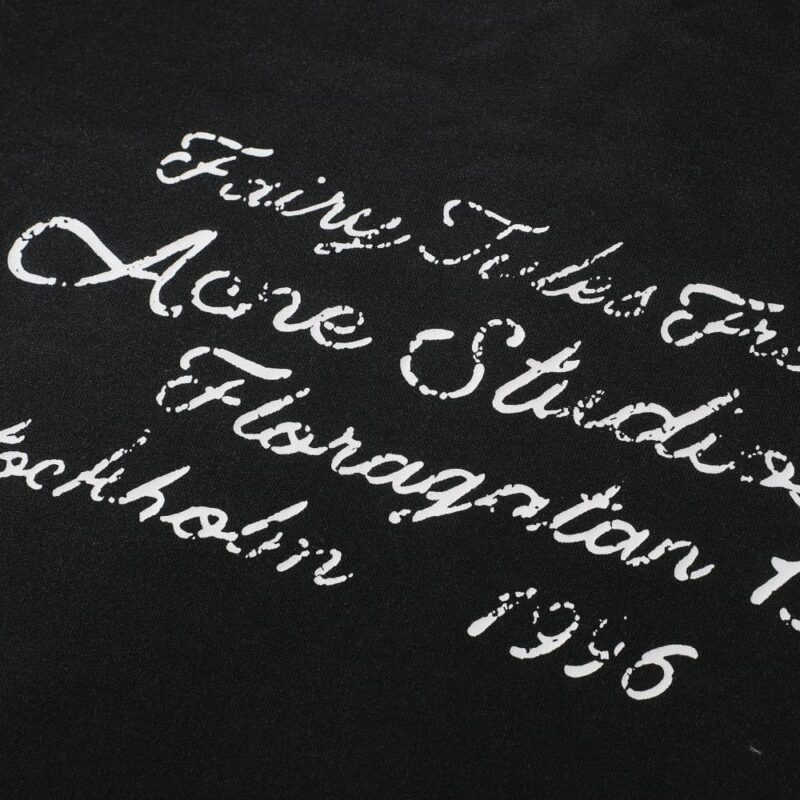 Fairy Tales Fro
Acne Studios
Floragatan 13
tockholm
1996